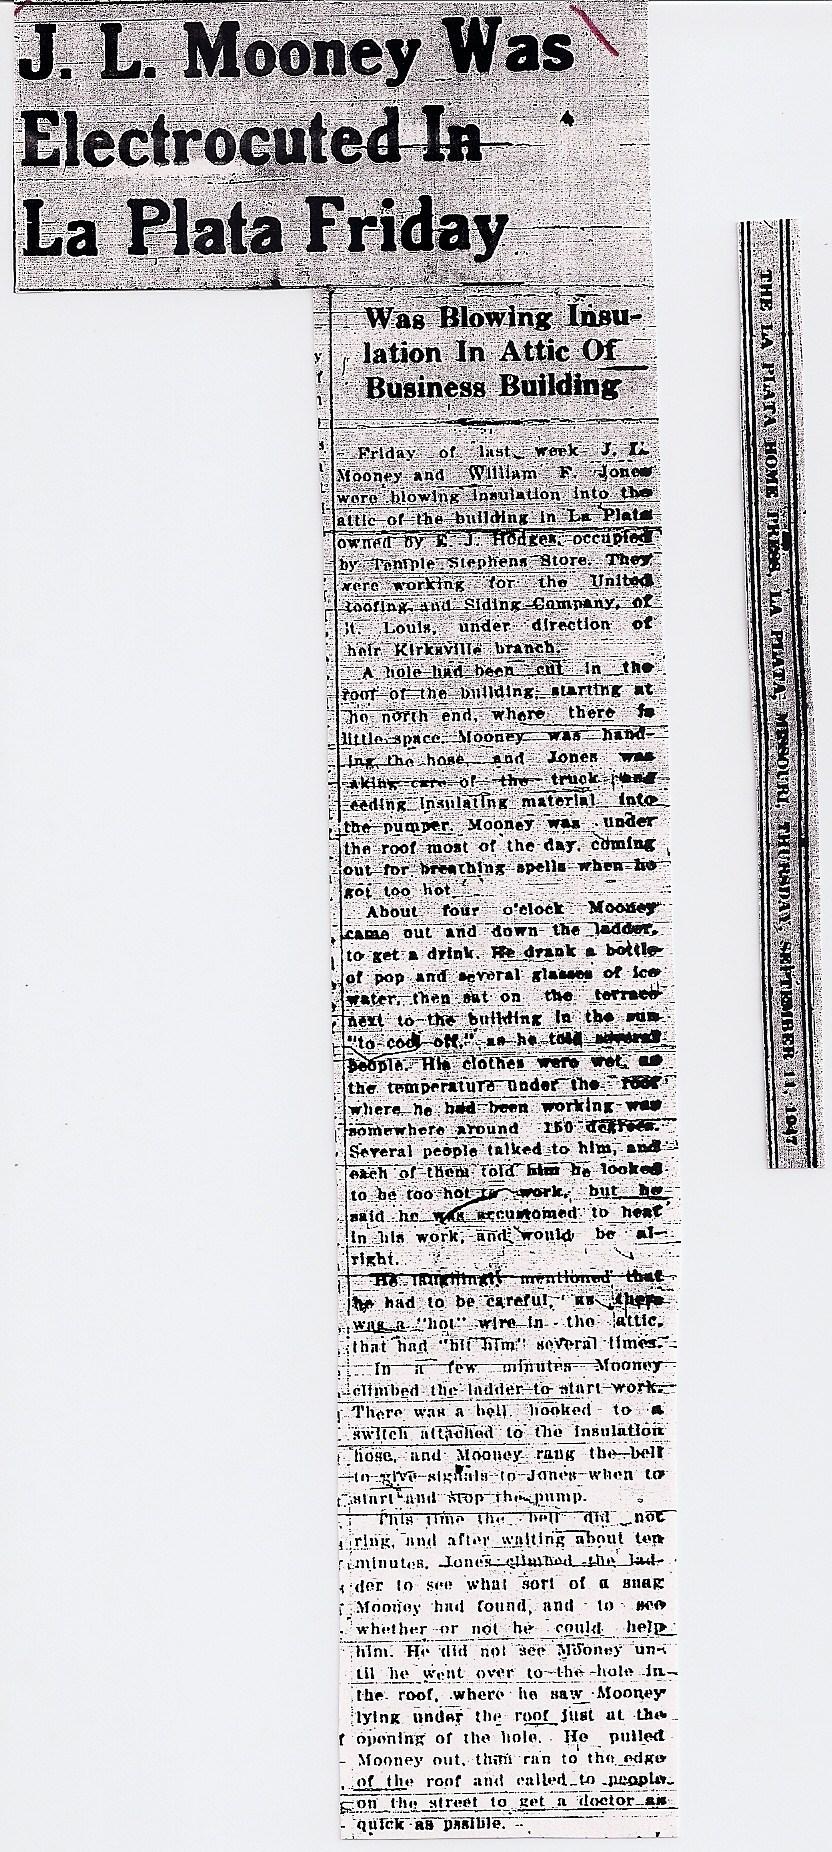 J. L. Mooney Was
Electrocuted In
La Plata Friday
Was Blowing Insu-
lation In Attic Of
Business Building
Friday of last week J. L.
Mooney and William F. Jones
were blowing insulation into the
attic of the building in La Plata
owned by E. J. Hodges, occupied
by Temple Stephens Store. They
were working for the United
Roofing and Siding Company, of
St. Louis, under direction of
their Kirksville branch.
A hole had been cut in the
roof of the building, starting at
the north end, where there is
little space. Mooney was hand-
ing the hose, and Jones was
taking care of the truck and
feeding insulating material into
the pumper. Mooney was under
the roof most of the day, coming
out for breathing spells when he
got too hot.
About four o'clock Mooney
came out and down the ladder,
to get a drink. He drank a bottle
of pop and several glasses of ice
water, then sat on the terrace
next to the building in the sun
"to cool off," as he told several
people. His clothes were wet, as
the temperature under the roof
where he had been working was
somewhere around 150 degrees.
Several people talked to him, and
each of them told him he looked
to be too hot to work, but he
said he was accustomed to heat
in his work, and would be al-
right.
He laughingly mentioned that
he had to be careful, as there
was a "hot" wire in the attic,
that had "bit him" several times.
In a few minutes Mooney
climbed the ladder to start work.
There was a bell hooked to a
switch attached to the insulation
hose, and Mooney rang the bell
to give signals to Jones when to
start and stop the pump.
This time the bell did not
ring, and after waiting about ten
minutes, Jones climbed the lad-
der to see what sort of a snag
Mooney had found, and to see
whether or not he could help
him. He did not see Mooney un-
til he went over to the hole in
the roof, where he saw Mooney
lying under the roof just at the
opening of the hole. He pulled
Mooney out, than ran to the edge
of the roof and called to people
on the street to get a doctor as
quick as pssible.
THE LA PLATA HOME PRESS, LA PLATA, MISSOURI, THURSDAY, SEPTEMBER 11, 1947